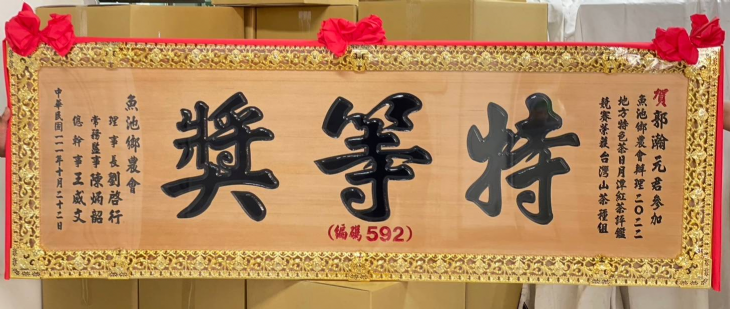 賀郭瀚元君參加
魚池鄉農會辦理二０二二
地方特色茶日月潭紅茶評鑑
競賽榮獲台灣山茶種組
特等獎
(編碼592)
魚池鄉農會
理事長劉啓行
常務監事陳炳韶
總幹事王威文
中華民國一一一年十月二十二日